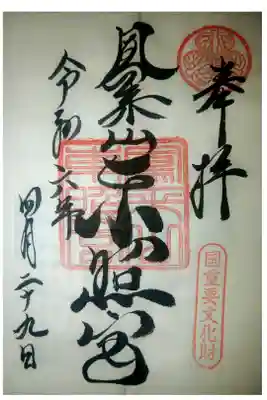 奉拝
国重要文化財
鳳来山東照宮
令和六年
四月二十九日